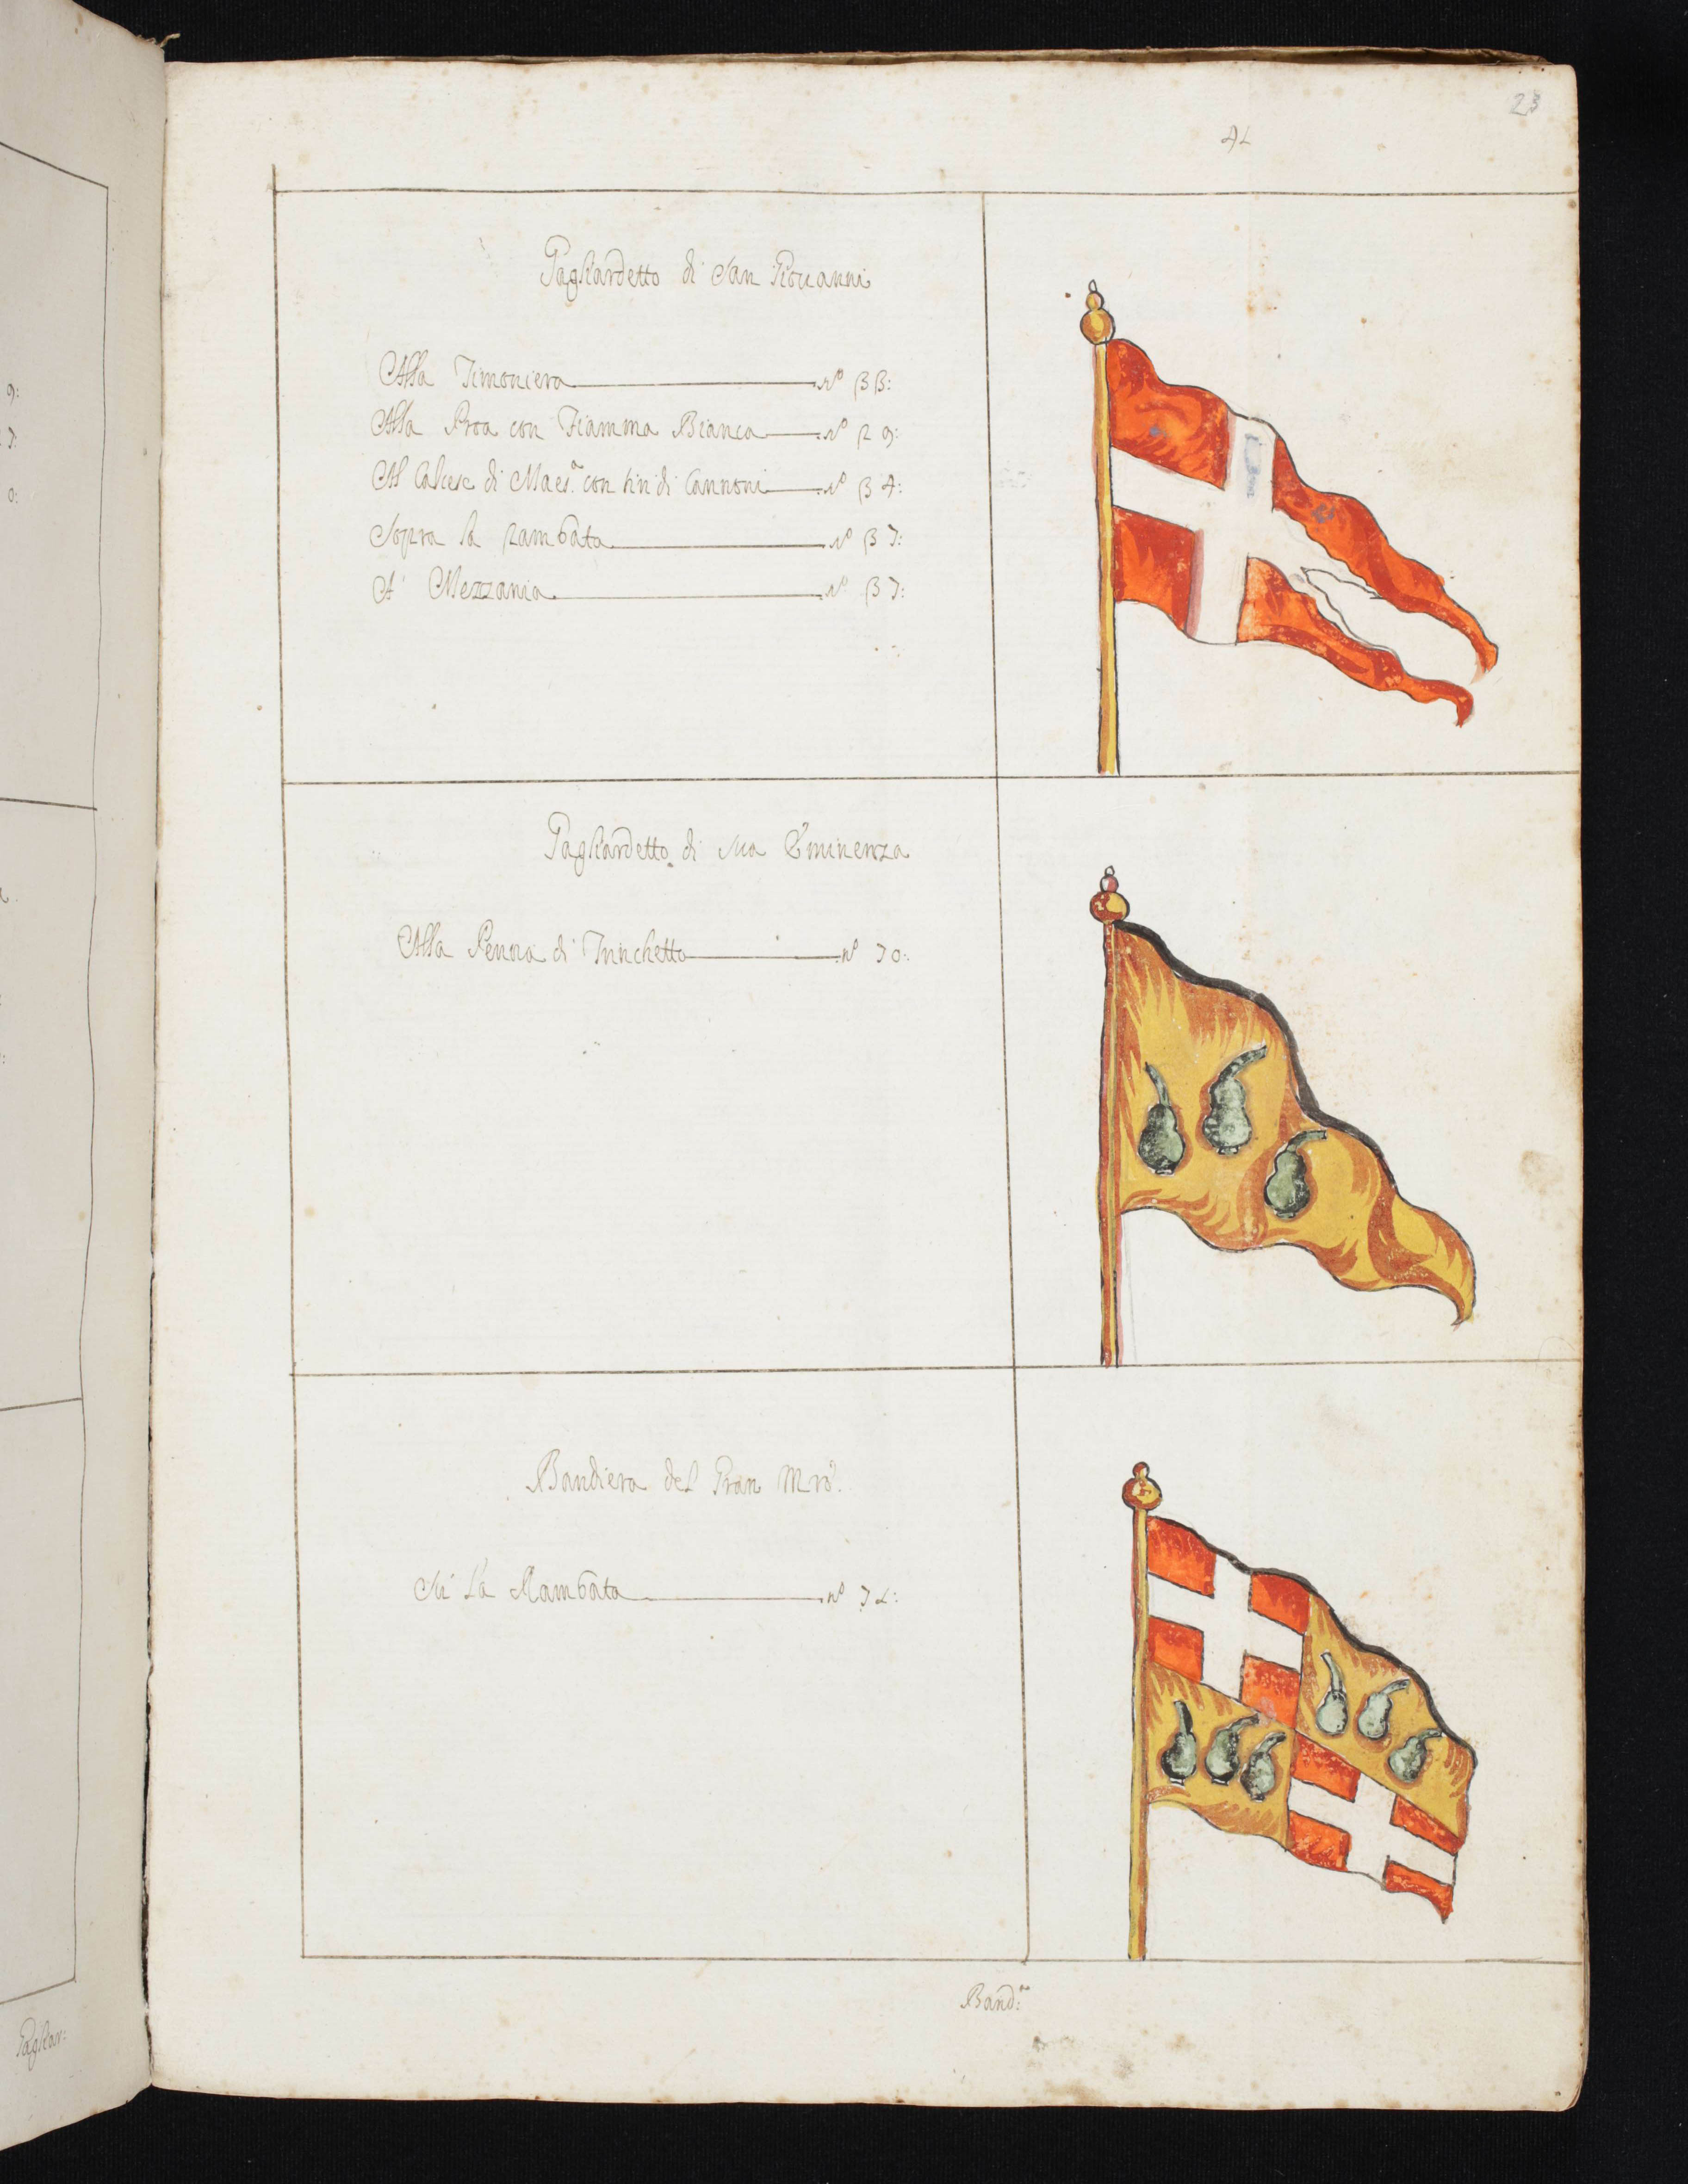 23
41
Pagliardetto di San Giouanni
Alla Timoniera n.º 33:
Alla Proa con Fiamma Bianca n.º 29:
Al Calcese di Maes.ª con tiri di Cannoni n.º 34:
Sopra la rambata n.º 37:
A' Mezzania n.º 37:
Pagliardetto di Sua Eminenza
Alla Penna di Trinchetto n.º 70:
Bandiera del Gran Mrõ.
Sù La Rambata n.º 71:
Band:ª
9:
7:
0:
Pagliar: